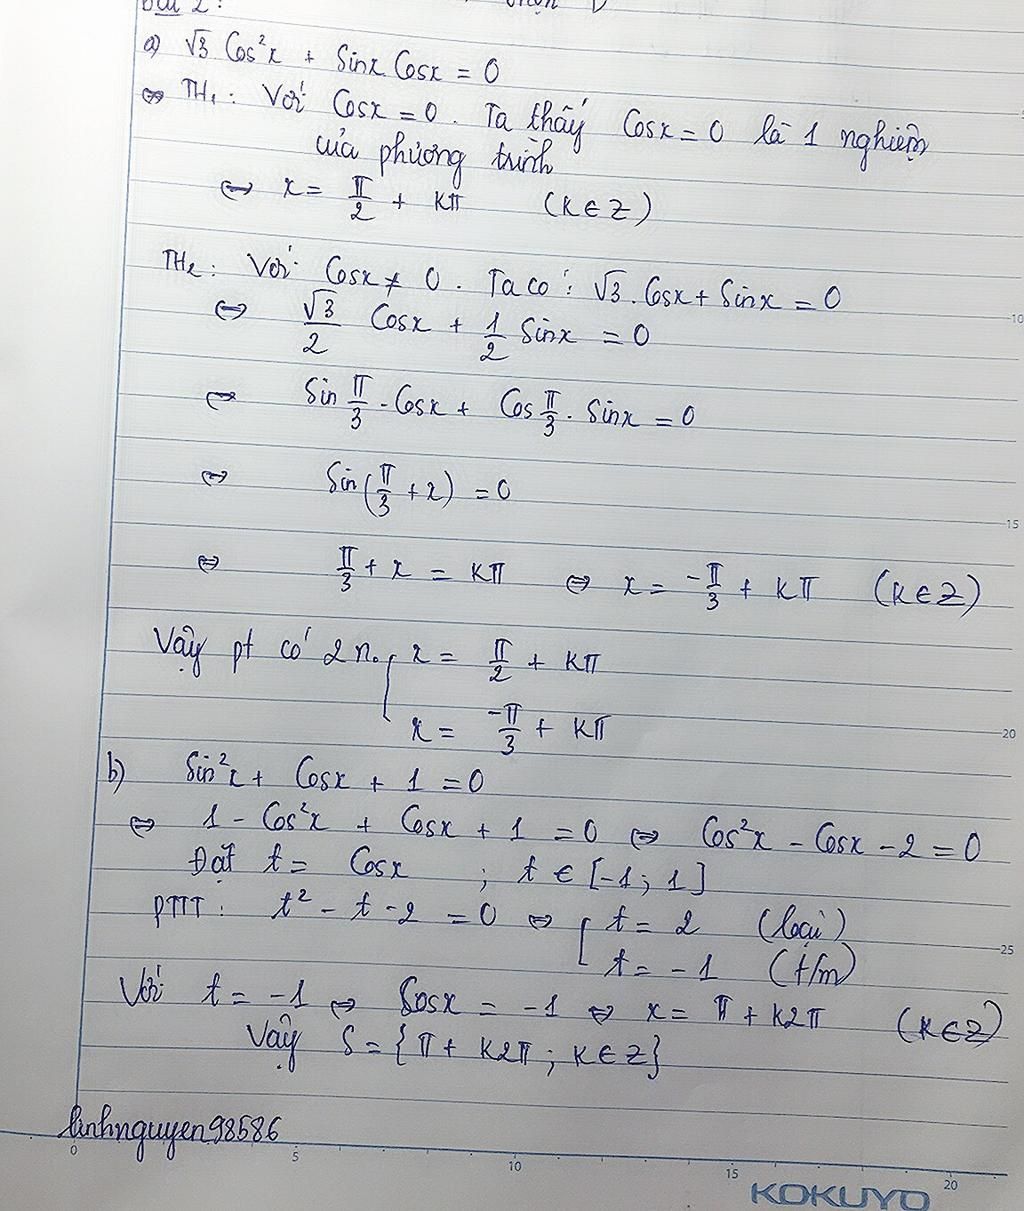 Bài 2:
a) √3 Cos²x + Sinx Cosx = 0
⇔ TH₁: Với Cosx = 0. Ta thấy Cosx = 0 là 1 nghiệm
của phương trình
⇔ x = π/2 + kπ (k ∈ Z)
TH₂: Với Cosx ≠ 0. Ta có: √3. Cosx + Sinx = 0
⇔ √3/2 Cosx + 1/2 Sinx = 0
⇔ Sin π/3 . Cosx + Cos π/3 . Sinx = 0
⇔ Sin(π/3 + x) = 0
⇔ π/3 + x = kπ ⇔ x = -π/3 + kπ (k ∈ Z)
Vậy pt có 2 n₀ [ x = π/2 + kπ
x = -π/3 + kπ
b) Sin²x + Cosx + 1 = 0
⇔ 1 - Cos²x + Cosx + 1 = 0 ⇔ Cos²x - Cosx - 2 = 0
Đặt t = Cosx ; t ∈ [-1; 1]
PTTT: t² - t - 2 = 0 ⇔ [ t = 2 (loại)
t = -1 (t/m)
Với t = -1 ⇔ Cosx = -1 ⇔ x = π + k2π (k ∈ Z)
Vậy S = {π + k2π; k ∈ Z}
linhnguyen98586
0 5 10 15 20
10
15
20
25
KOKUYO